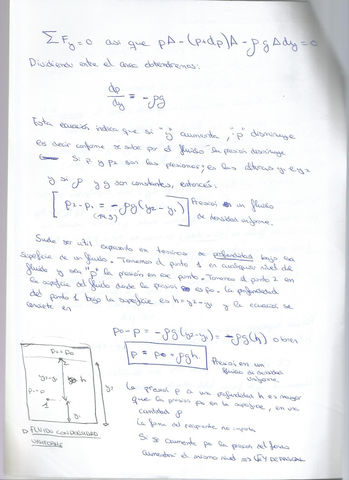 ΣFy=0 así que pA-(p+dp)A-ρgAdy=0
Dividiendo entre el area obtendremos:
dp/dy = -ρg
Esta ecuación indica que si "y" aumenta, "p" disminuye
es decir conforme se sube por el fluido la presión disminuye
Si p1 y p2 son las presiones, en las alturas y1 e y2
y si ρ y g son constantes, entonces:
p2-p1 = -ρg(y2-y1)
Presión en un fluido
de densidad uniforme.
Suele ser util expresarlo en terminos de profundidad bajo la
superficie de un fluido. Tomemos el punto 1 en cualquier nivel del
fluido y sea "p" la presión en ese punto. Tomemos el punto 2 en
la superficie del fluido donde la presión es p0. La profundidad
del punto 1 bajo la superficie es h=y2-y1 y la ecuación se
convierte en
p0-p = -ρg(y2-y1) = -ρg(h) o bien
p = p0+ρgh.
Presión en un
fluido de densidad
uniforme.
p2=p0
2
y2-y1
h
1
y1
y2
FLUIDO CON DENSIDAD
UNIFORME
La presión p a una profundidad h es mayor
que la presión p0 en la superficie, en una
cantidad
La forma del recipiente no importa
Si se aumenta p0 la presión del fondo
aumentará el mismo nivel => LEY DE PASCAL